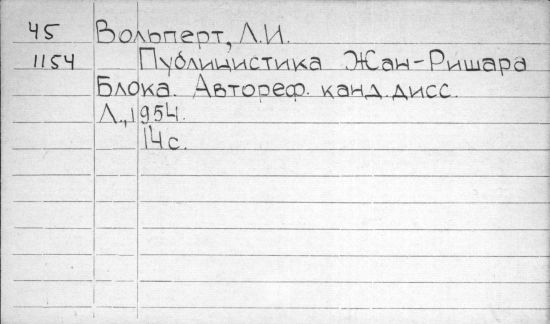 45 Вольперт, Л.И.
1154 Публицистика Жан-Ришара
Блока. Автореф. канд. дисс.
Л., 1954.
14 с.